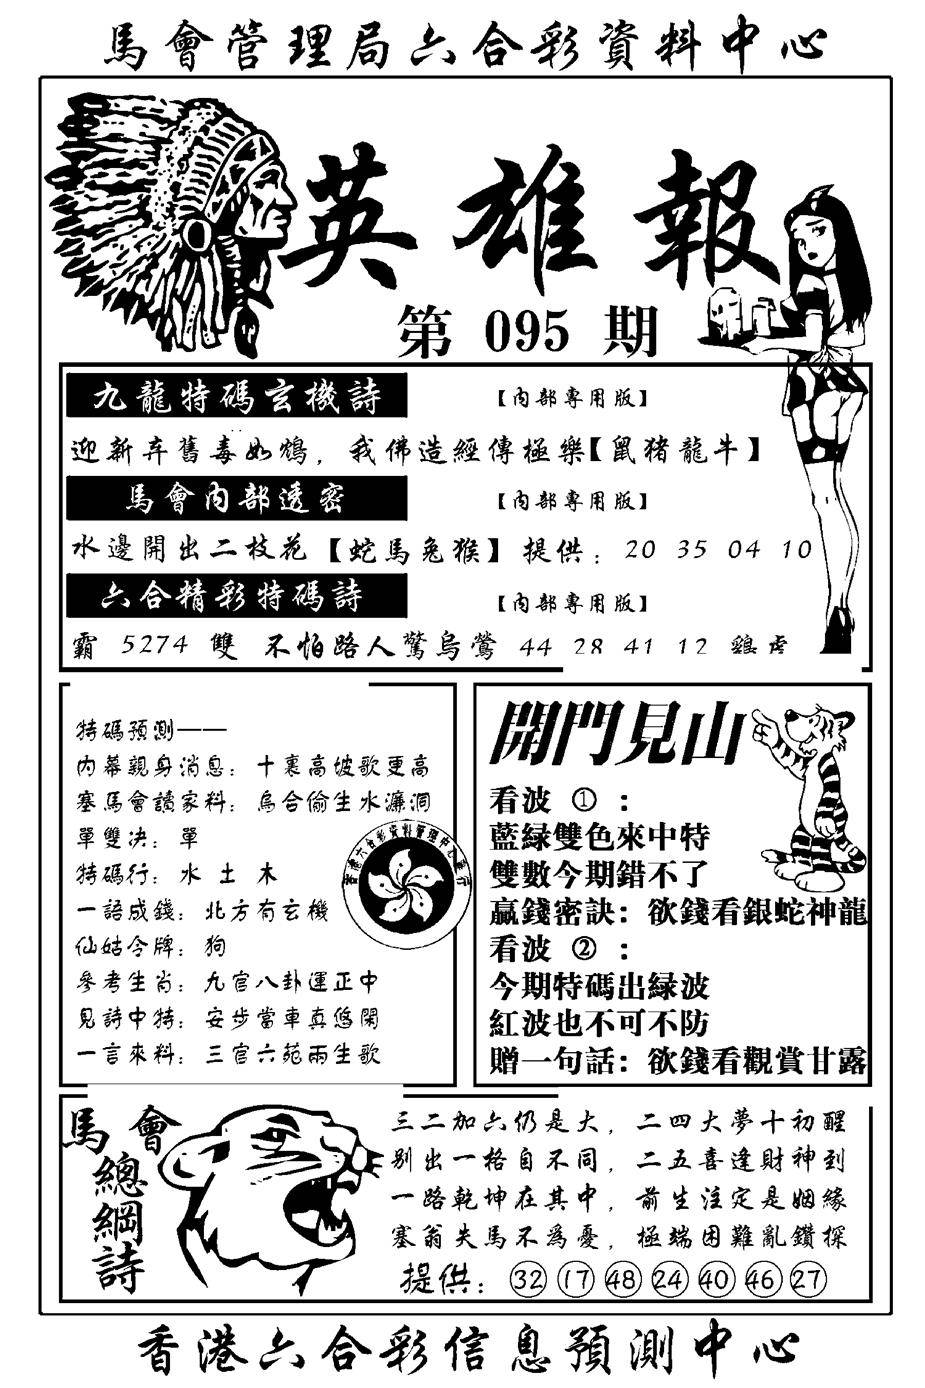 馬會管理局六合彩資料中心
英雄報
第 095 期
九龍特碼玄機詩 【内部專用版】
迎新弃舊毒如鴆，我佛造經傳極樂【鼠猪龍牛】
馬會内部透密 【内部專用版】
水邊開出二枝花【蛇馬兔猴】提供：20 35 04 10
六合精彩特碼詩 【内部專用版】
霸 5274 雙 不怕路人驚烏鶯 44 28 41 12 鷄虎
特碼預測——
内幕親身消息：十裏高坡歌更高
塞馬會讀家料：烏合偷生水濂洞
單雙决：單
特碼行：水 土 木
一語成錢：北方有玄機
仙姑令牌：狗
參考生肖：九宫八卦運正中
見詩中特：安步當車真悠閑
一言來料：三宫六苑兩生歌
開門見山
看波 ①：
藍緑雙色來中特
雙數今期錯不了
贏錢密訣：欲錢看銀蛇神龍
看波 ②：
今期特碼出緑波
紅波也不可不防
贈一句話：欲錢看觀賞甘露
馬會
總綱詩
三二加六仍是大，二四大夢十初醒
别出一格自不同，二五喜逢財神到
一路乾坤在其中，前生注定是姻緣
塞翁失馬不爲憂，極端困難亂鑽探
提供：32 17 48 24 40 46 27
香港六合彩信息預測中心